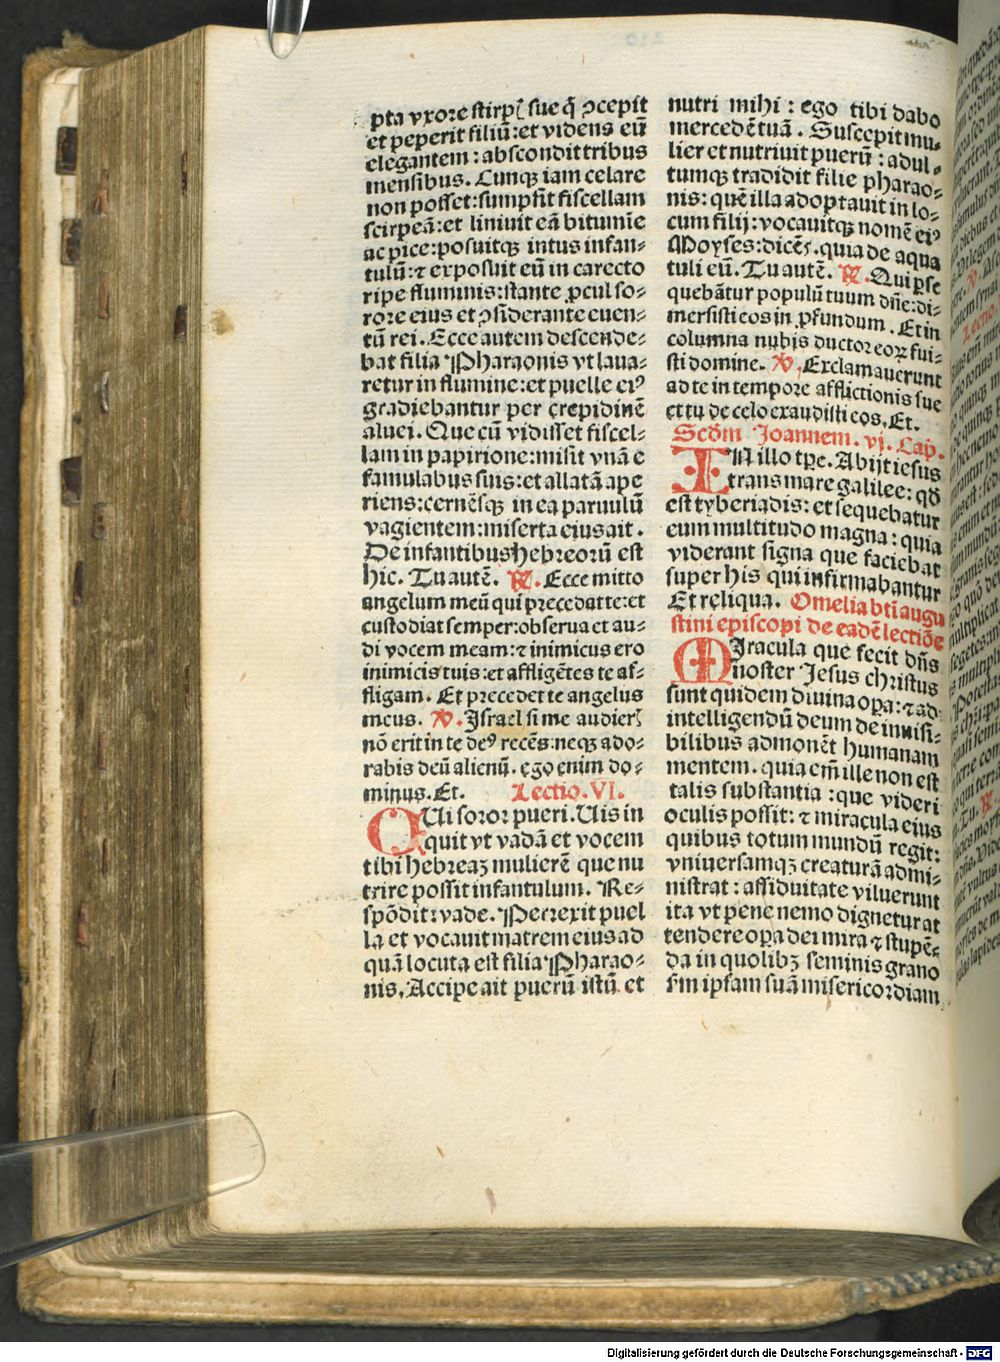 pta vxore stirpꝭ sue q̄ ꝯcepit
et peperit filiū: et videns eū
elegantem: abscondit tribus
mensibus. Cunqꝫ iam celare
non posset: sumpsit fiscellam
scirpeā: et liniuit eā bitumie
ac pice: posuitqꝫ intus infan⸗
tulū: ⁊ exposuit eū in carecto
ripe fluminis: stante ꝓcul so⸗
rore eius et ꝯsiderante euen⸗
tū rei. Ecce autem descende⸗
bat filia Pharaonis vt laua⸗
retur in flumine: et puelle eiꝰ
gradiebantur per crepidinē
aluei. Que cū vidisset fiscel⸗
lam in papirione: misit vnā e
famulabus suis: et allatā ape
riens: cernēsqꝫ in ea paruulū
vagientem: miserta eius ait.
De infantibus hebreorū est
hic. Tu autē. ℟. Ecce mitto
angelum meū qui precedat te: et
custodiat semper: obserua et au⸗
di vocem meam: ⁊ inimicus ero
inimicis tuis: et affligētes te af⸗
fligam. Et precedet te angelus
meus. ℣. Israel si me audierꝭ
nō erit in te deꝰ recēs: neqꝫ ado⸗
rabis deū alienū. ego enim do⸗
minus. Et. Lectio. VI.
CUi soror pueri. Uis in
quit vt vadā et vocem
tibi hebreaꝫ mulierē que nu
trire possit infantulum. Re⸗
spōdit: vade. Perrexit puel
la et vocauit matrem eius ad
quā locuta est filia Pharao⸗
nis. Accipe ait puerū istū et
nutri mihi: ego tibi dabo
mercedē tuā. Suscepit mu⸗
lier et nutriuit puerū: adul⸗
tumqꝫ tradidit filie pharao⸗
nis: quē illa adoptauit in lo⸗
cum filij: vocauitqꝫ nomē eiꝰ
Moyses: dicēs. quia de aqua
tuli eū. Tu autē. ℟. Qui ꝑse
quebātur populū tuum dn̄e: di⸗
mersisti eos in ꝓfundum. Et in
columna nubis ductor eoꝝ fui⸗
sti domine. ℣. Exclamauerunt
ad te in tempore afflictionis sue
et tu de celo exaudisti eos. Et.
Scd̄m Joannem. vj. Cap.
IN illo tꝑe. Abijt iesus
trans mare galilee: qd̄
est tyberiadis: et sequebatur
eum multitudo magna: quia
viderant signa que faciebat
super his qui infirmabantur
Et reliqua. Omelia bti augu
stini episcopi de eadē lectiōe
MIracula que fecit dn̄s
noster Jesus christus
sunt quidem diuina oꝑa: ⁊ ad
intelligendū deum de inuisi⸗
bilibus admonēt humanam
mentem. quia em̄ ille non est
talis substantia: que videri
oculis possit: ⁊ miracula eius
quibus totum mundū regit:
vniuersamqꝫ creaturā admi⸗
nistrat: assiduitate viluerunt
ita vt pene nemo dignetur at
tendere oꝑa dei mira ⁊ stupē⸗
da in quolibꝫ seminis grano
sm̄ ipsam suā misericordiam
Digitalisierung gefördert durch die Deutsche Forschungsgemeinschaft - DFG